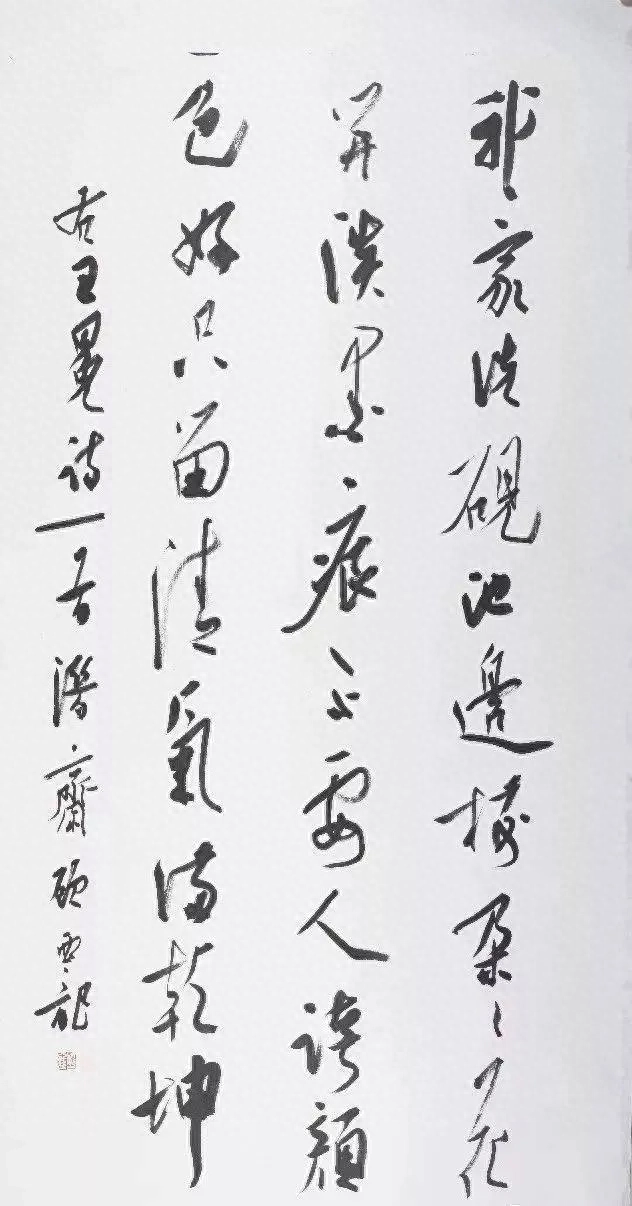 我家洗硯池邊樹朵々花
開淡墨痕不要人誇顏
色好只留清氣滿乾坤
右王冕詩一首潛齋